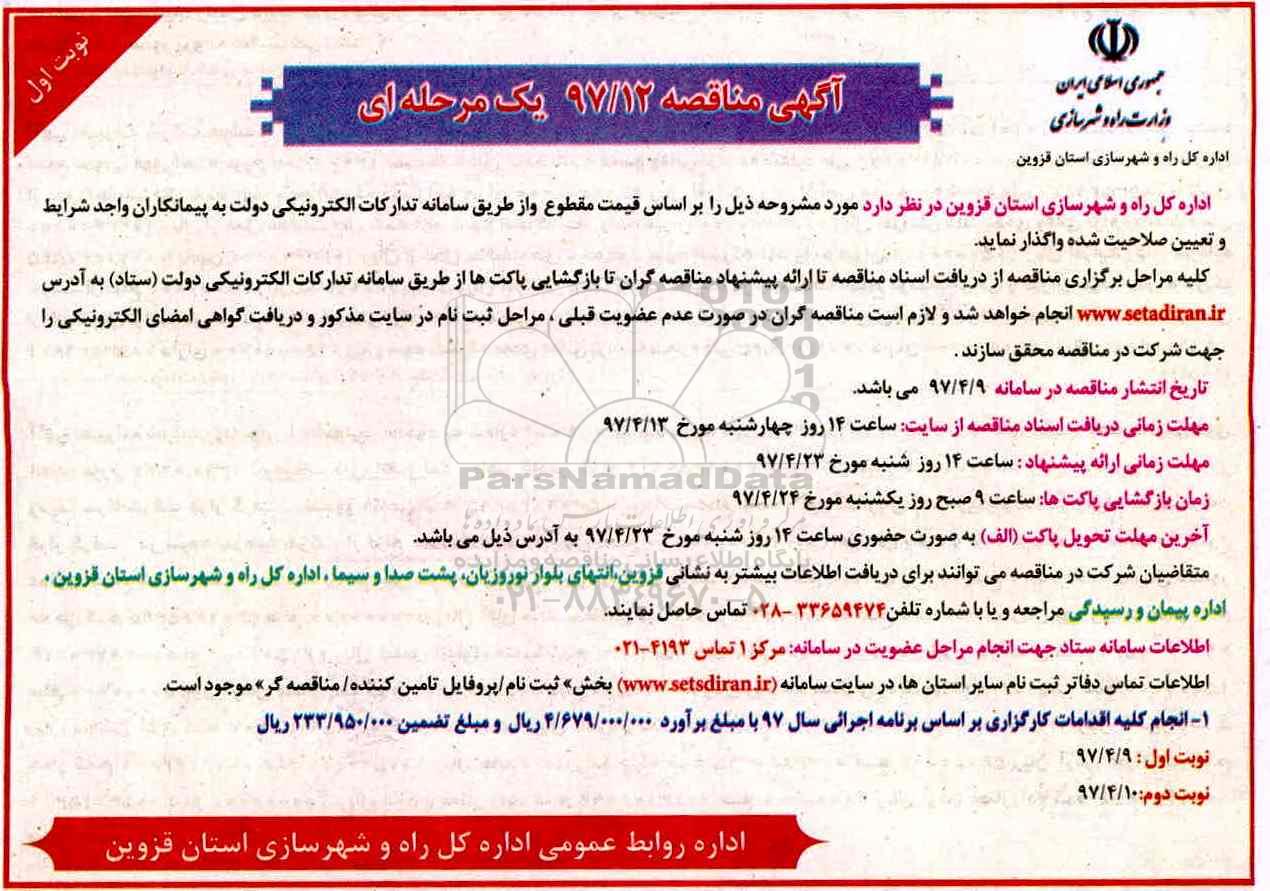 نوبت اول
جمهوری اسلامی ایران
وزارت راه و شهرسازی
اداره کل راه و شهرسازی استان قزوین
آگهی مناقصه ۹۷/۱۲ یک مرحله ای
اداره کل راه و شهرسازی استان قزوین در نظر دارد مورد مشروحه ذیل را بر اساس قیمت مقطوع واز طریق سامانه تدارکات الکترونیکی دولت به پیمانکاران واجد شرایط
و تعیین صلاحیت شده واگذار نماید.
کلیه مراحل برگزاری مناقصه از دریافت اسناد مناقصه تا ارائه پیشنهاد مناقصه گران تا بازگشایی پاکت ها از طریق سامانه تدارکات الکترونیکی دولت (ستاد) به آدرس
www.setadiran.ir انجام خواهد شد و لازم است مناقصه گران در صورت عدم عضویت قبلی ، مراحل ثبت نام در سایت مذکور و دریافت گواهی امضای الکترونیکی را
جهت شرکت در مناقصه محقق سازند .
تاریخ انتشار مناقصه در سامانه ۹۷/۴/۹ می باشد.
مهلت زمانی دریافت اسناد مناقصه از سایت: ساعت ۱۴ روز چهارشنبه مورخ ۹۷/۴/۱۳
مهلت زمانی ارائه پیشنهاد : ساعت ۱۴ روز شنبه مورخ ۹۷/۴/۲۳
زمان بازگشایی پاکت ها: ساعت ۹ صبح روز یکشنبه مورخ ۹۷/۴/۲۴
آخرین مهلت تحویل پاکت (الف) به صورت حضوری ساعت ۱۴ روز شنبه مورخ ۹۷/۴/۲۳ به آدرس ذیل می باشد.
متقاضیان شرکت در مناقصه می توانند برای دریافت اطلاعات بیشتر به نشانی قزوین،انتهای بلوار نوروزیان، پشت صدا و سیما ، اداره کل راه و شهرسازی استان قزوین ،
اداره پیمان و رسیدگی مراجعه و یا با شماره تلفن ۳۳۶۵۹۴۷۴ -۰۲۸ تماس حاصل نمایند.
اطلاعات سامانه ستاد جهت انجام مراحل عضویت در سامانه: مرکز ۱ تماس ۴۱۹۳-۰۲۱
اطلاعات تماس دفاتر ثبت نام سایر استان ها، در سایت سامانه (www.setsdiran.ir) بخش» ثبت نام/پروفایل تامین کننده/ مناقصه گر» موجود است.
۱- انجام کلیه اقدامات کارگزاری بر اساس برنامه اجرائی سال ۹۷ با مبلغ بر آورد ۴/۶۷۹/۰۰۰/۰۰۰ ریال و مبلغ تضمین ۲۳۳/۹۵۰/۰۰۰ ریال
نوبت اول : ۹۷/۴/۹
نوبت دوم: ۹۷/۴/۱۰
اداره روابط عمومی اداره کل راه و شهرسازی استان قزوین
ParsNamadData
پایگاه اطلاع رسانی مناقصه و مزایده
۰۲۱-۸۸۳۴۹۶۷۰-۵